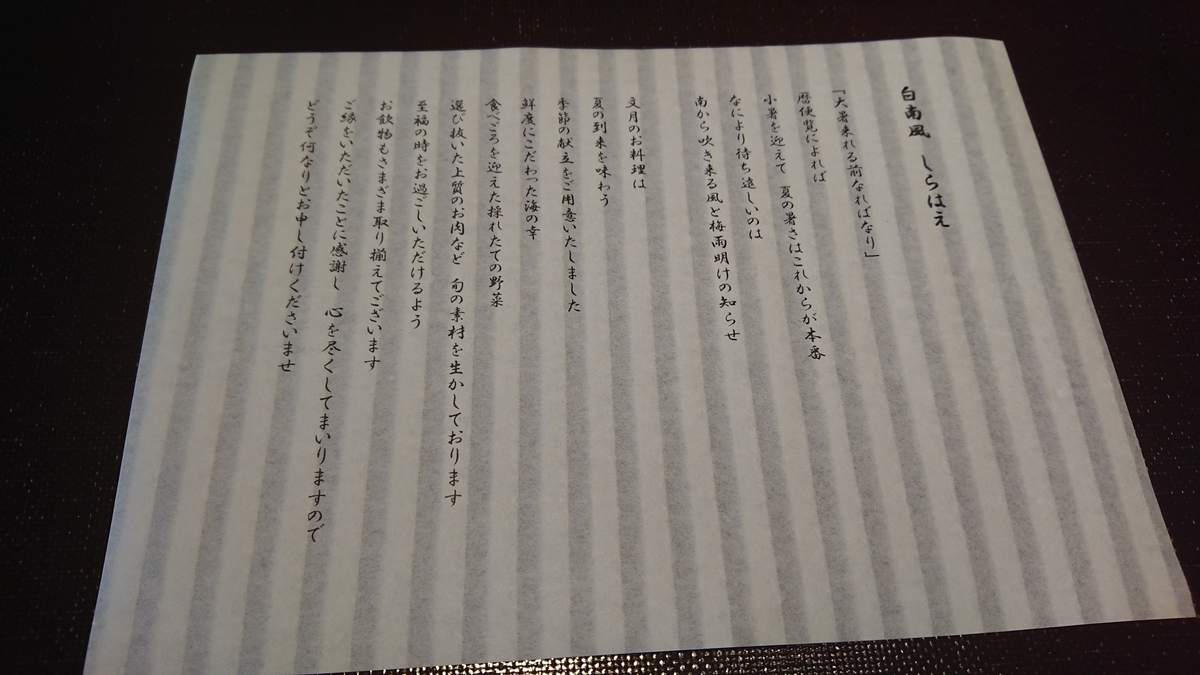 白南風　しらはえ
「大暑来れる前なればなり」
暦便覧によれば
小暑を迎えて　夏の暑さはこれからが本番
なにより待ち遠しいのは
南から吹き来る風と梅雨明けの知らせ
文月のお料理は
夏の到来を味わう
季節の献立をご用意いたしました
鮮度にこだわった海の幸
食べごろを迎えた採れたての野菜
選び抜いた上質のお肉など　旬の素材を生かしております
至福の時をお過ごしいただけるよう
お飲物もさまざま取り揃えてございます
ご縁をいただいたことに感謝し　心を尽くしてまいりますので
どうぞ何なりとお申し付けくださいませ